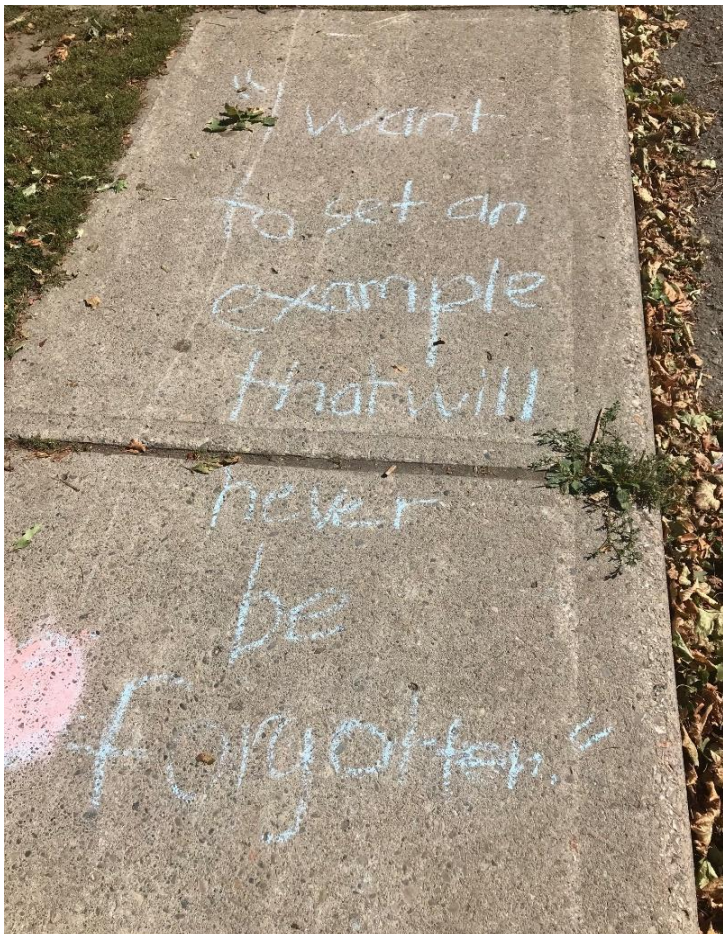 "I want
to set an
example
that will
never
be
forgotten."